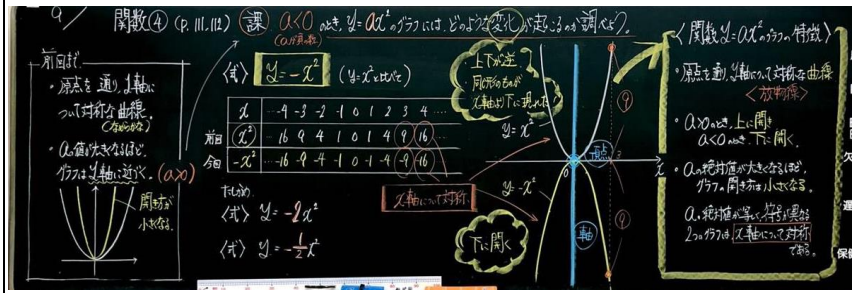 9/
関数④ (P.111,112)
課 a<0 のとき、y=ax²のグラフには、どのような変化が起こるのか調べよう。
(aが負の数)
前回まで
・原点を通り、y軸に
ついて対称な曲線。
(なめらかな)
・aの値が大きくなるほど、
グラフはy軸に近づく。(a>0)
開き方が
小さくなる。
〈式〉 y=-x² (y=x²と比べて)
x … -4 -3 -2 -1 0 1 2 3 4 …
前回 x² … 16 9 4 1 0 1 4 9 16 …
今回 -x² … -16 -9 -4 -1 0 -1 -4 -9 -16 …
x軸について対称
たしかめ
〈式〉 y=-2x²
〈式〉 y=-1/2x²
・上下が逆
・同じ形のものが
x軸より下に現れた
y=x²
y=-x²
下に開く
原点
0
3
x
9
9
軸
〈関数y=ax²のグラフの特徴〉
・原点を通り、y軸について対称な曲線
〈放物線〉
・a>0のとき、上に開き
a<0のとき、下に開く。
・aの絶対値が大きくなるほど、
グラフの開き方は小さくなる。
aの絶対値が等しく、符号が異なる
2つのグラフは、x軸について対称
である。
欠
遅
保健